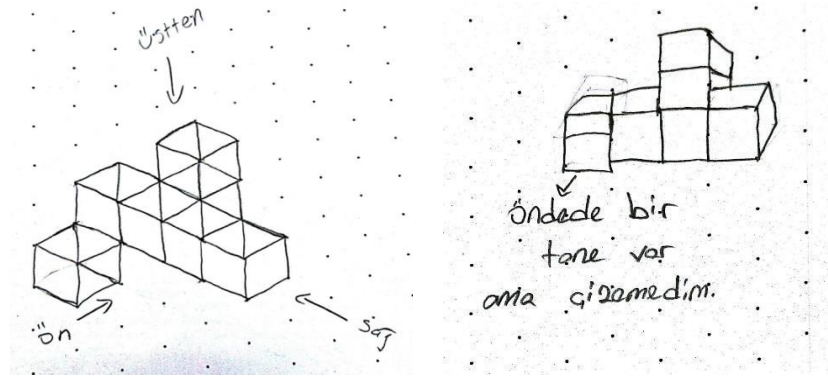 üstten
ön
sağ
öndede bir
tane var
ama çizemedim.